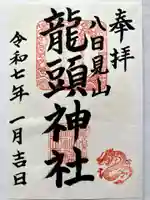 奉拝
八日見山
龍頭神社
令和七年一月吉日